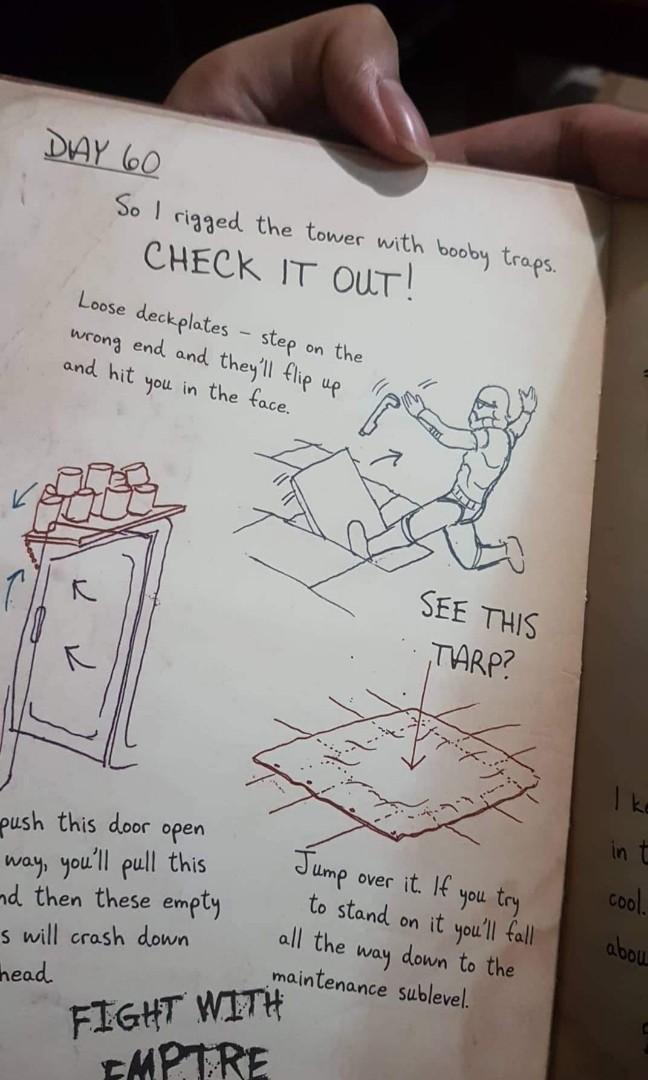 DAY 60
So I rigged the tower with booby traps.
CHECK IT OUT!
Loose deckplates – step on the
wrong end and they'll flip up
and hit you in the face.
SEE THIS
TARP?
push this door open
way, you'll pull this
nd then these empty
s will crash down
head.
Jump over it. If you try
to stand on it you'll fall
all the way down to the
maintenance sublevel.
FIGHT WITH
EMPIRE
I k
in t
cool.
abou